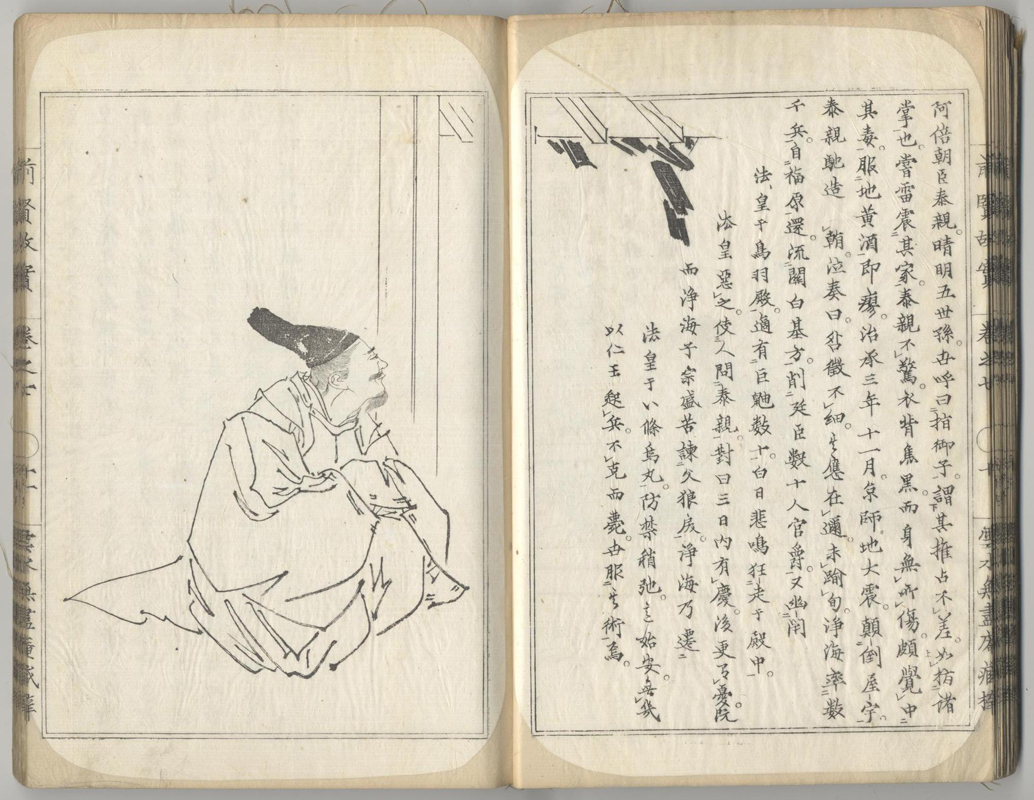 阿倍朝臣泰親。晴明五世孫。世呼曰指御子。謂其推占不差。如指諸
掌也。嘗雷震其家。泰親不驚。衣背焦黒。而身無所傷。頗覺中
其毒。服地黄酒。即瘳。治承三年十一月。京師地大震。顛倒屋宇。
泰親馳造朝。泣奏曰。咎徴不細。其應在邇。未踰旬。浄海率数
千兵。自福原還。流関白基房。削廷臣數十人官爵。又幽閇
法皇于鳥羽殿。適有巨鼬数十。白日悲鳴。狂走于殿中。
法皇惡之。使人問泰親。對曰三日内有慶。後更有憂。既
而浄海子宗盛苦諫父狼戻。浄海乃遷
法皇于八條烏丸。防禁稍弛。意始安。無幾
以仁王起兵。不克而薨。世服其術焉。
前賢故實
巻之七